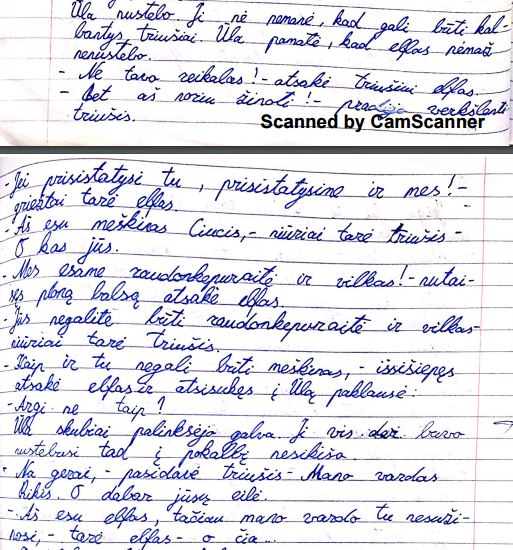 Ula nustebo. Ji nė nemanė, kad gali būti kal-
bantys triušiai. Ula pamatė, kad elfas nėmaž
nenustebo.
- Ne tavo reikalas! - atsakė triušiui elfas.
- Bet aš noriu žinoti! - pradėjo verkšlenti
triušis.
Scanned by CamScanner
- Jei prisistatysi tu, prisistatysime ir mes! -
griežtai tarė elfas.
- Aš esu meškinas Ciucis, - niūriai tarė triušis -
O kas jūs.
- Mes esame raudonkepuraitė ir vilkas! - nutai-
sęs ploną balsą atsakė elfas.
- Jūs negalitė būti raudonkepuraitė ir vilkas -
niūriai tarė triušis.
- Kaip ir tu negali būti meškinas, - išsišiepęs
atsakė elfas ir atsisukęs į Ulą paklausė:
- Argi ne taip?
Ula skubiai palinksėjo galva. Ji vis dar buvo
nustebusi tad į pokalbę nesikišo.
- Na gerai, - pasidavė triušis - Mano vardas
Rikis. O dabar jūsų eilė.
- Aš esu elfas, tačiau mano vardo tu nesuži-
nosi, - tarė elfas - o čia...